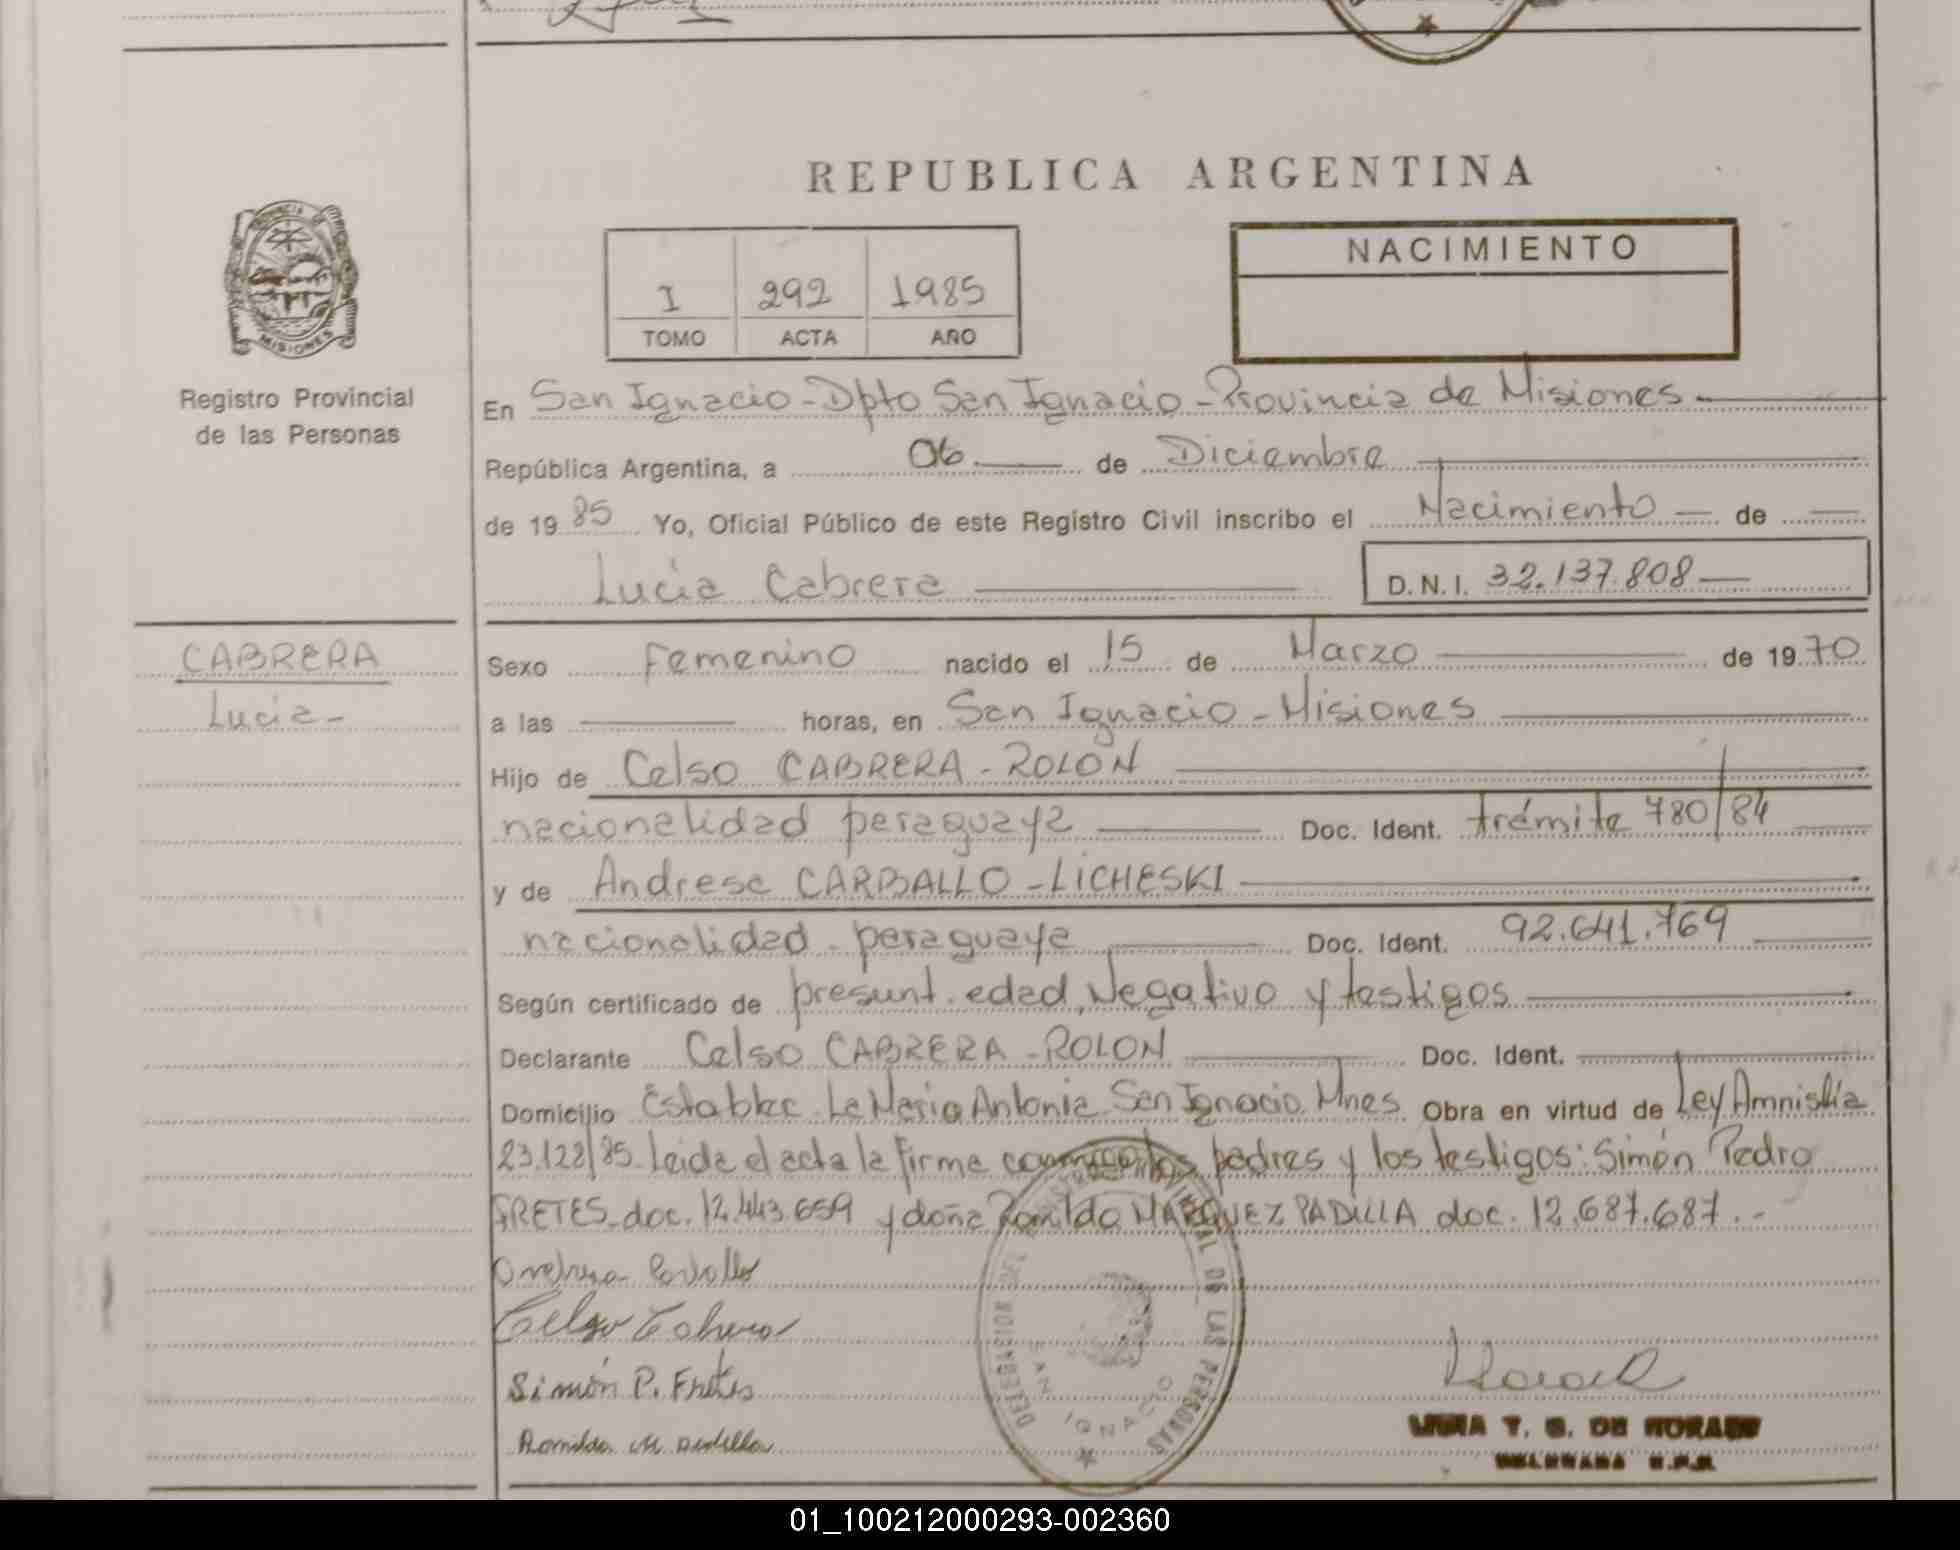 REPUBLICA ARGENTINA
PROVINCIA DE
MISIONES
Registro Provincial
de las Personas
I 292 1985
TOMO ACTA AÑO
NACIMIENTO
En San Ignacio - Dpto San Ignacio - Provincia de Misiones
República Argentina, a 06 de Diciembre
de 1985 Yo, Oficial Público de este Registro Civil inscribo el Nacimiento de
Lucia Cabrera D.N.I. 32.137.808
CABRERA
Lucia-
Sexo Femenino nacido el 15 de Marzo de 1970
a las horas, en San Ignacio - Misiones
Hijo de Celso CABRERA - ROLON
nacionalidad paraguaya Doc. Ident. trámite 780/84
y de Andresa CARBALLO - LICHESKI
nacionalidad paraguaya Doc. Ident. 92.641.769
Según certificado de presunt. edad, Negativo y testigos
Declarante Celso CABRERA - ROLON Doc. Ident.
Domicilio Establec. La Maria Antonia San Ignacio Mnes. Obra en virtud de Ley Amnistía
23.122/85. Leida el acta la firma conmigo los padres y los testigos: Simón Pedro
FRETES doc. 12.443.659 y doña Romilda MARQUEZ PADILLA doc. 12.687.687.-
Carvallo
Celso Cabrera
Simón P. Fretes
Romilda M Padilla
DELEGACION DEL REGISTRO PROVINCIAL DE LAS PERSONAS
SAN IGNACIO
T. G. DE MORAES
DELEGADA R.P.P.
01_100212000293-002360